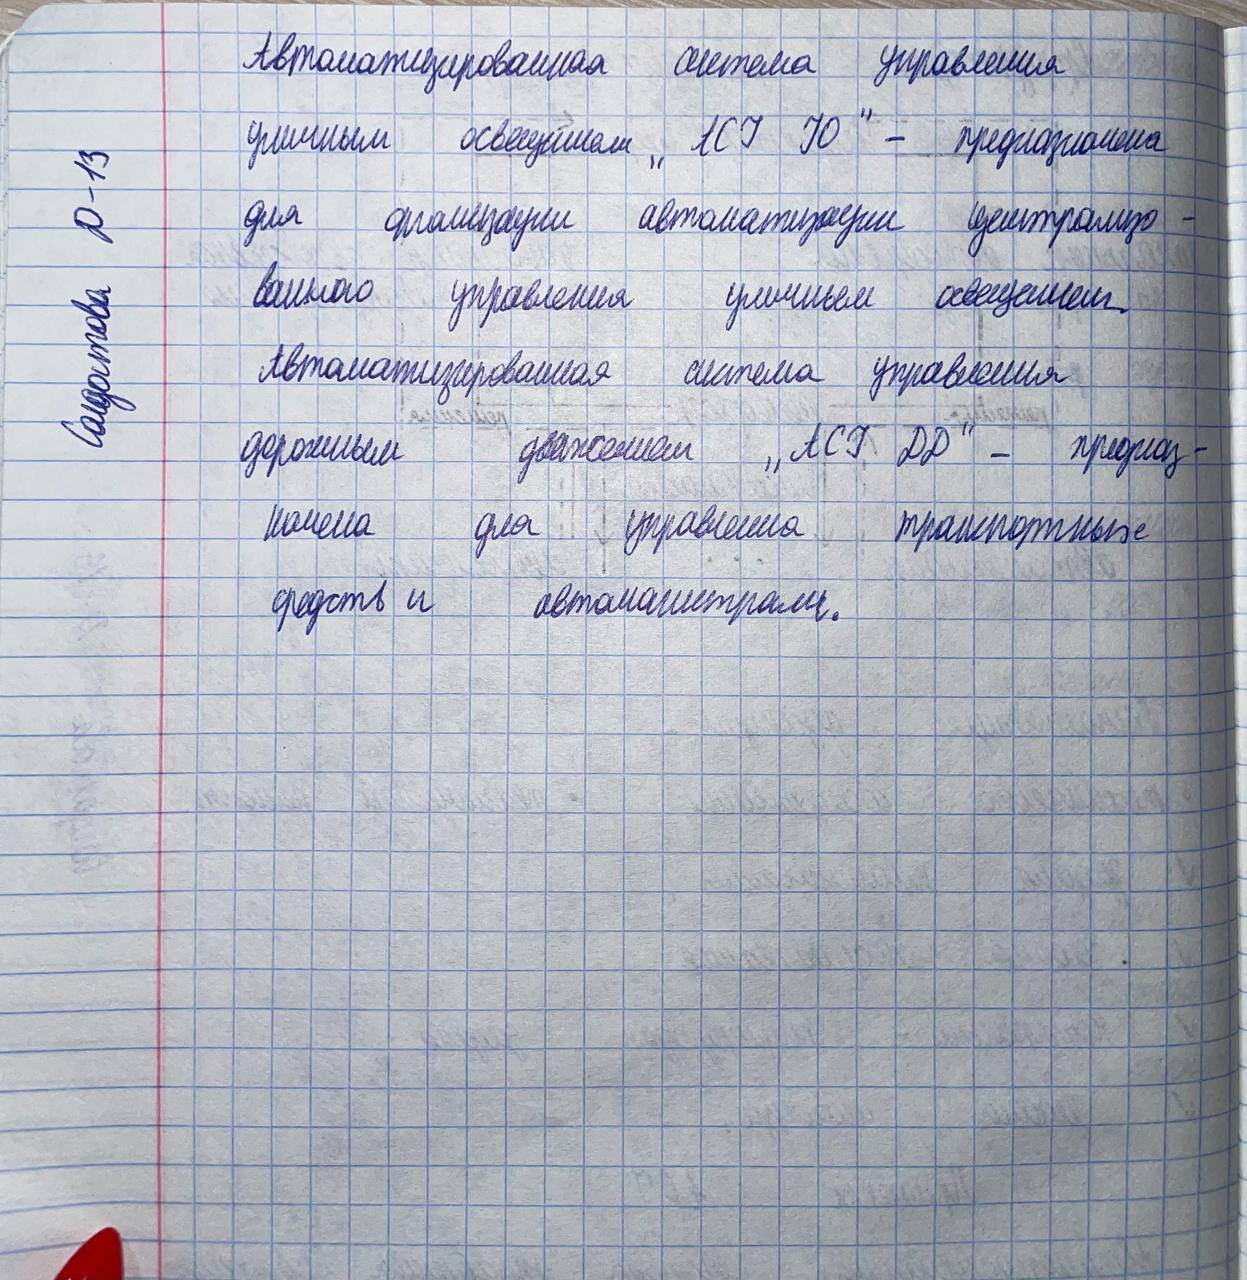 Автоматизированная система управления
уличным освещением „АСУ УО" – предназначена
для организации автоматизации централизо-
ванного управления уличным освещением.
Автоматизированная система управления
дорожным движением „АСУ ДД" – предназ-
начена для управления транспортных
средств и автомагистрали.
Д-13